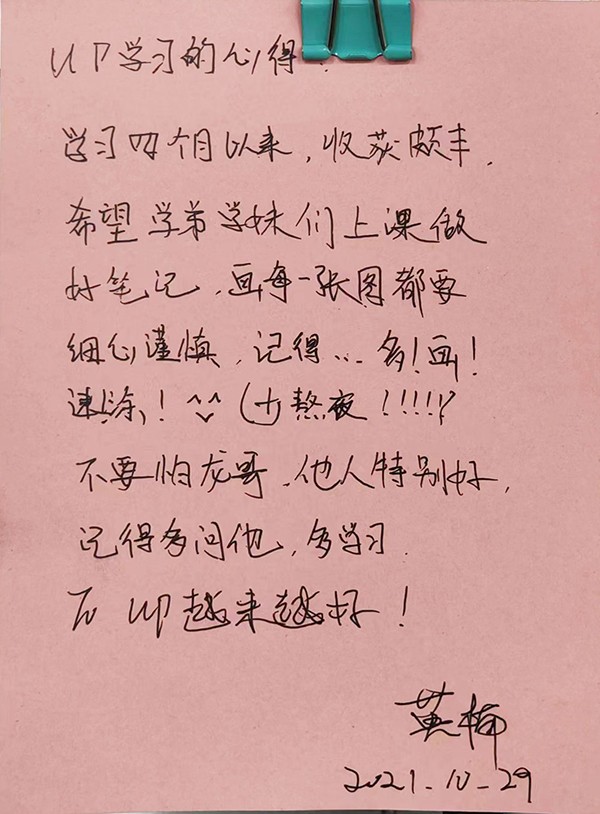 UP学习的心得:
学习四个月以来,收获颇丰.
希望学弟学妹们上课做
好笔记,画每一张图都要
细心谨慎,记得...多!画!
速涂! ^^ (才)熬夜!!!!!
不要怕龙哥,他人特别好,
记得多问他,多学习.
UP越来越好!
黄楠
2021-10-29